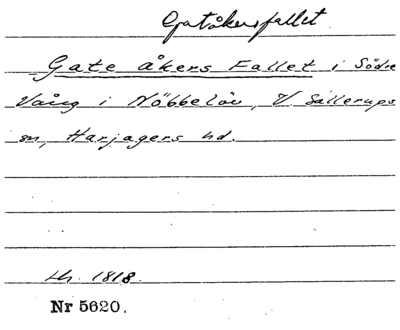 Gatåkersfallet
Gate åkers Fallet i Södre
Vång i Nöbbelöv, V. Sallerups
sn, Harjagers hd.
Lh. 1818.
Nr 5620.